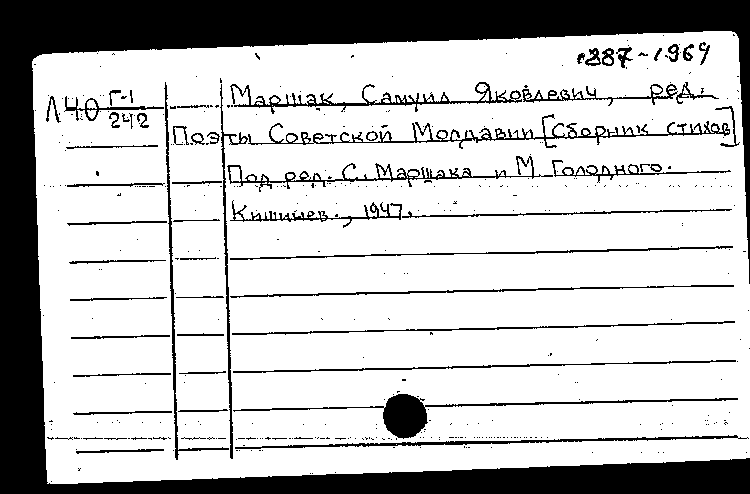 1887-1964
Л40 Г-1/242 Маршак, Самуил Яковлевич, ред.
Поэты Советской Молдавии [Сборник стихов]
Под ред. С. Маршака и М. Голодного.
Кишинев., 1947.